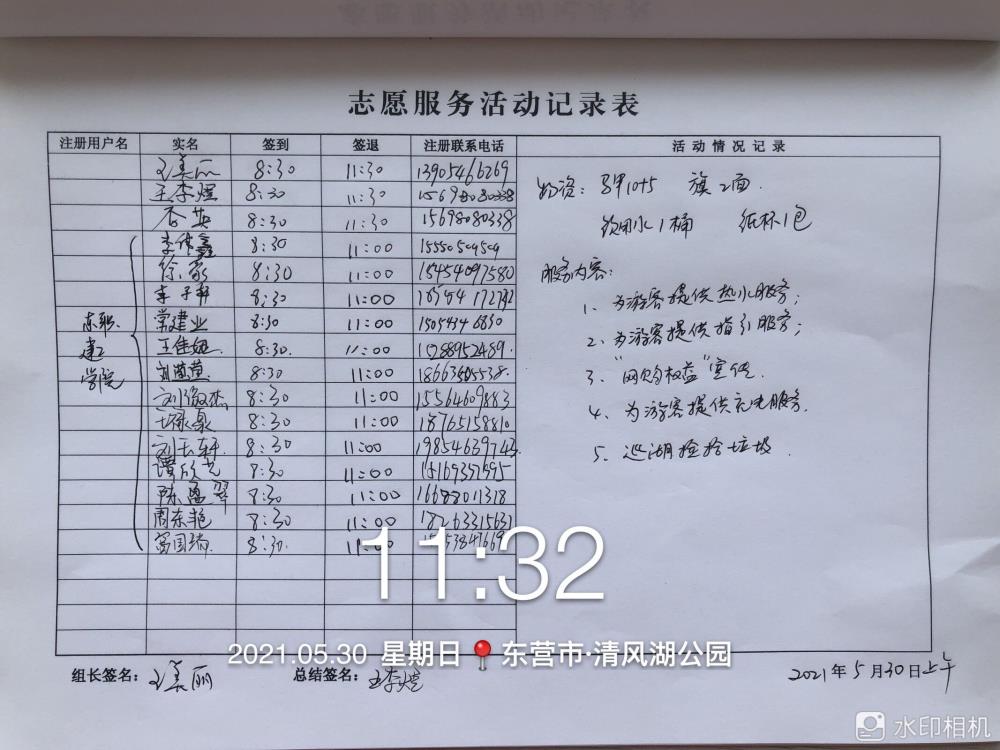 志愿服务活动记录表
注册用户名 实名 签到 签退 注册联系电话 活动情况记录
王美丽 8:30 11:30 13905466269
王李煜 8:30 11:30 15698080338
杏英 8:30 11:30 15698080338
8:30 11:00
徐 8:30 11:00
李子轩 8:30 11:00
常建业 8:30 11:00
王佳妞 8:30. 11:00
8:30 11:00
刘微杰 8:30 11:00 15564609883
8:30 11:00 18765158810
刘玉轩 8:30 11:00 19854639743
谭欣 8:30 11:00
陈盈翠 8:30 11:00
周东艳 8:30 11:00
国瑞 8:30. 11:00
东职.
建工
学院
物资: 马甲10+5 旗2面.
饮用水1桶 纸杯1包
服务内容:
1、为游客提供热水服务;
2、为游客提供指引服务;
3、"网购权益"宣传.
4、为游客提供充电服务.
5、巡湖捡拾垃圾
11:32
2021.05.30 星期日 东营市·清风湖公园
组长签名: 王美丽 总结签名: 王李煜 2021年5月30日上午
水印相机